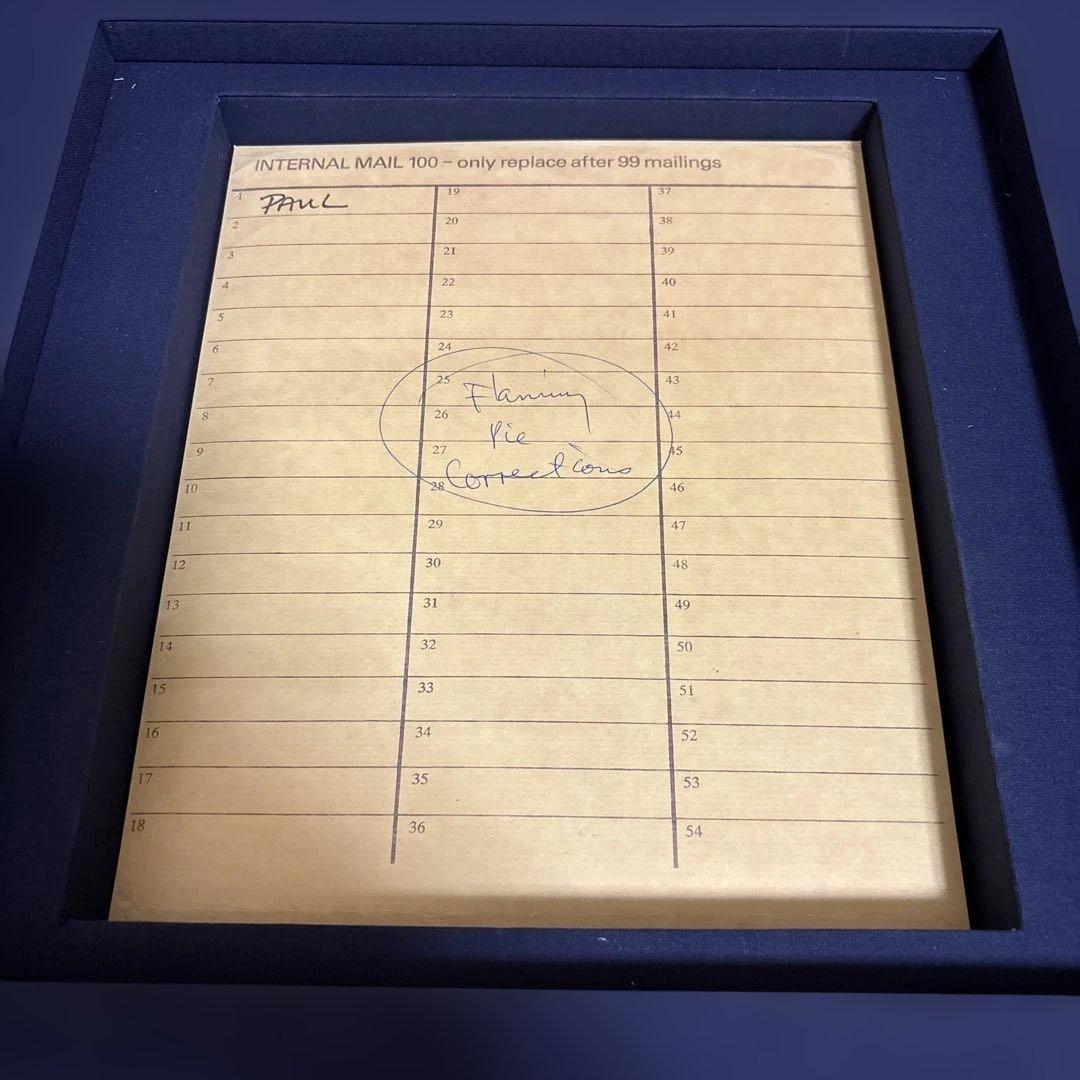 INTERNAL MAIL 100 – only replace after 99 mailings
1 PAUL
2
3
4
5
6
7
8
9
10
11
12
13
14
15
16
17
18
19
20
21
22
23
24
25 Flaming
26 Pie
27 Corrections
28
29
30
31
32
33
34
35
36
37
38
39
40
41
42
43
44
45
46
47
48
49
50
51
52
53
54